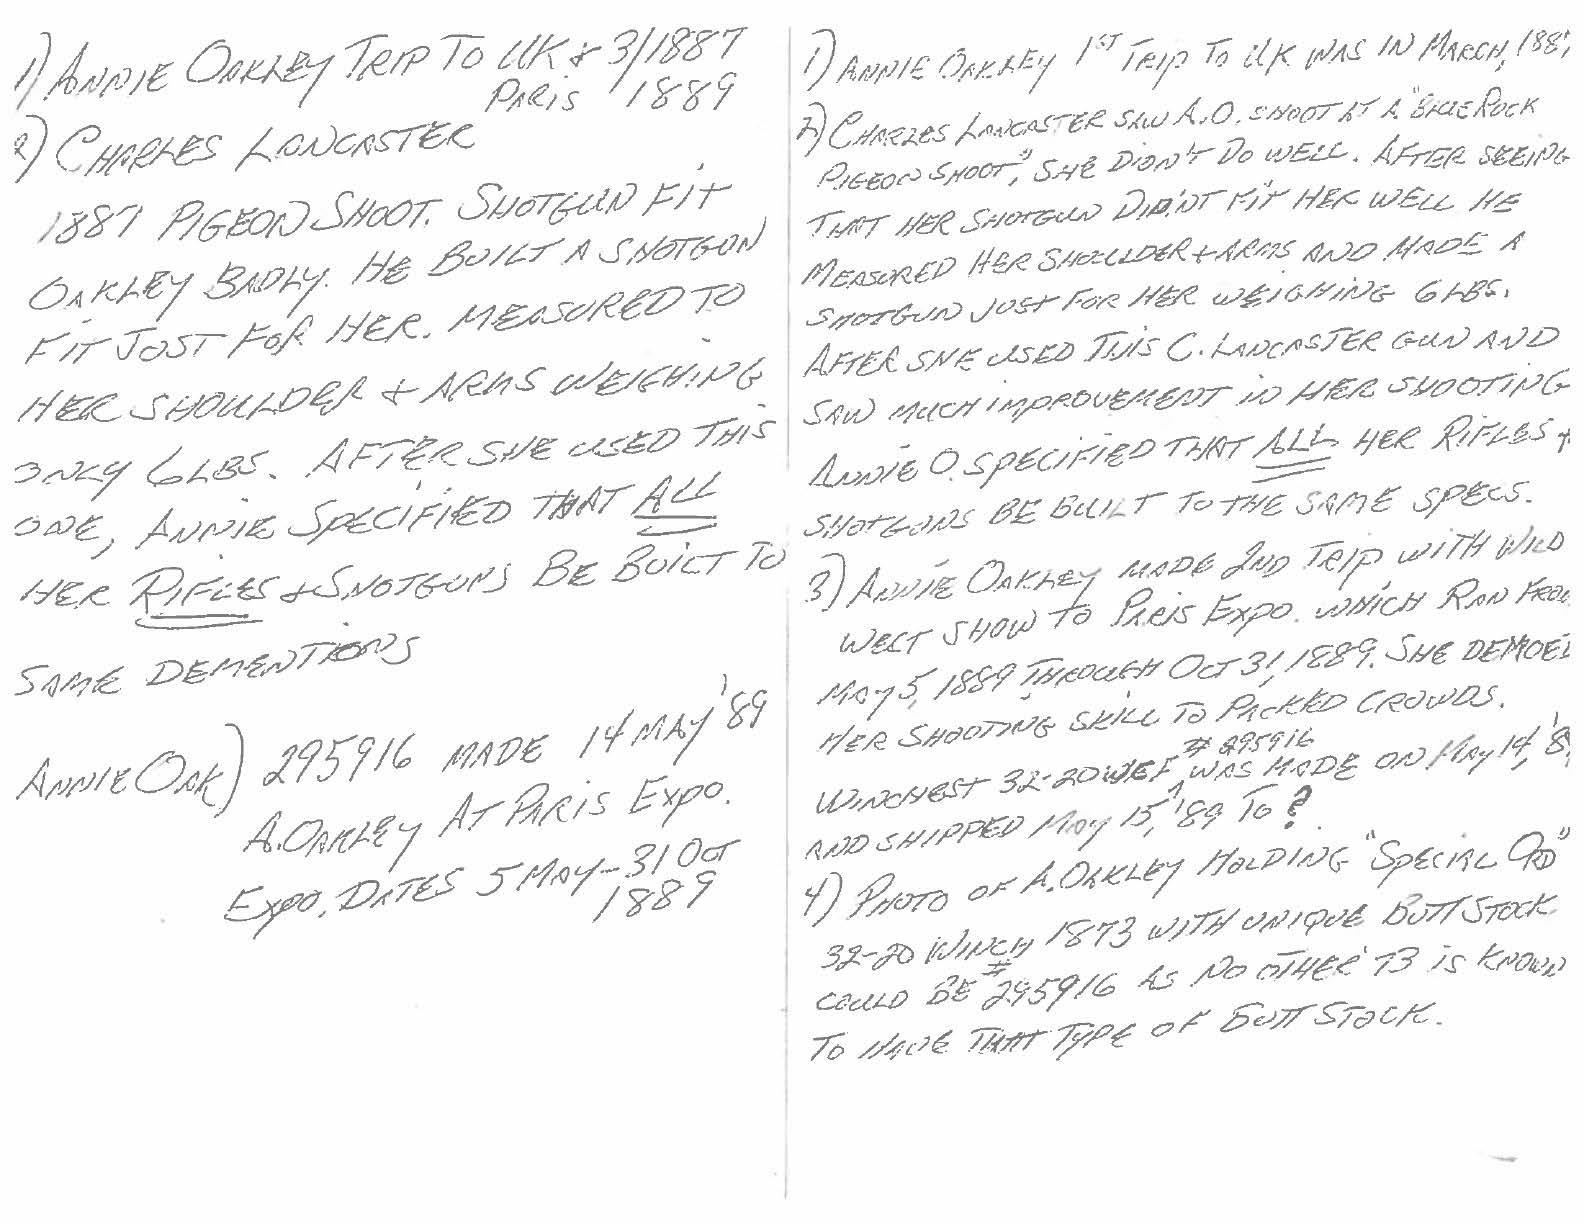 1) ANNIE OAKLEY TRIP TO UK & 3/1887
PARIS 1889
2) CHARLES LANCASTER
1887 PIGEON SHOOT. SHOTGUN FIT
OAKLEY BADLY. HE BUILT A SHOTGUN
FIT JUST FOR HER. MEASURED TO
HER SHOULDER & ARMS WEIGHING
ONLY 6 LBS. AFTER SHE USED THIS
ONE, ANNIE SPECIFIED THAT ALL
HER RIFLES & SHOTGUNS BE BUILT TO
SAME DEMENTIONS
ANNIE OAK) 295916 MADE 14 MAY '89
A. OAKLEY AT PARIS EXPO.
EXPO. DATES 5 MAY - 31 OCT
1889
1) ANNIE OAKLEY 1ST TRIP TO UK WAS IN MARCH, 188
2) CHARLES LANCASTER SAW A.O. SHOOT AT A "BLUE ROCK
PIGEON SHOOT", SHE DIDN'T DO WELL. AFTER SEEING
THAT HER SHOTGUN DID'NT FIT HER WELL HE
MEASURED HER SHOULDER & ARMS AND MADE A
SHOTGUN JUST FOR HER WEIGHING 6 LBS.
AFTER SHE USED THIS C. LANCASTER GUN AND
SAW MUCH IMPROVEMENT IN HER SHOOTING
ANNIE O. SPECIFIED THAT ALL HER RIFLES &
SHOTGUNS BE BUILT TO THE SAME SPECS.
3) ANNIE OAKLEY MADE 2ND TRIP WITH WILD
WEST SHOW TO PARIS EXPO. WHICH RAN FROM
MAY 5, 1889 THROUGH OCT 31, 1889. SHE DEMOED
HER SHOOTING SKILL TO PACKED CROWDS.
# 295916
WINCHEST 32-20 WCF WAS MADE ON MAY 14, '8
AND SHIPPED MAY 15, '89 TO ?
4) PHOTO OF A. OAKLEY HOLDING "SPECIAL ORD"
32-20 WINCH 1873 WITH UNIQUE BUTT STOCK
COULD BE #295916 AS NO OTHER '73 IS KNOWN
TO HAVE THAT TYPE OF BUTT STOCK.